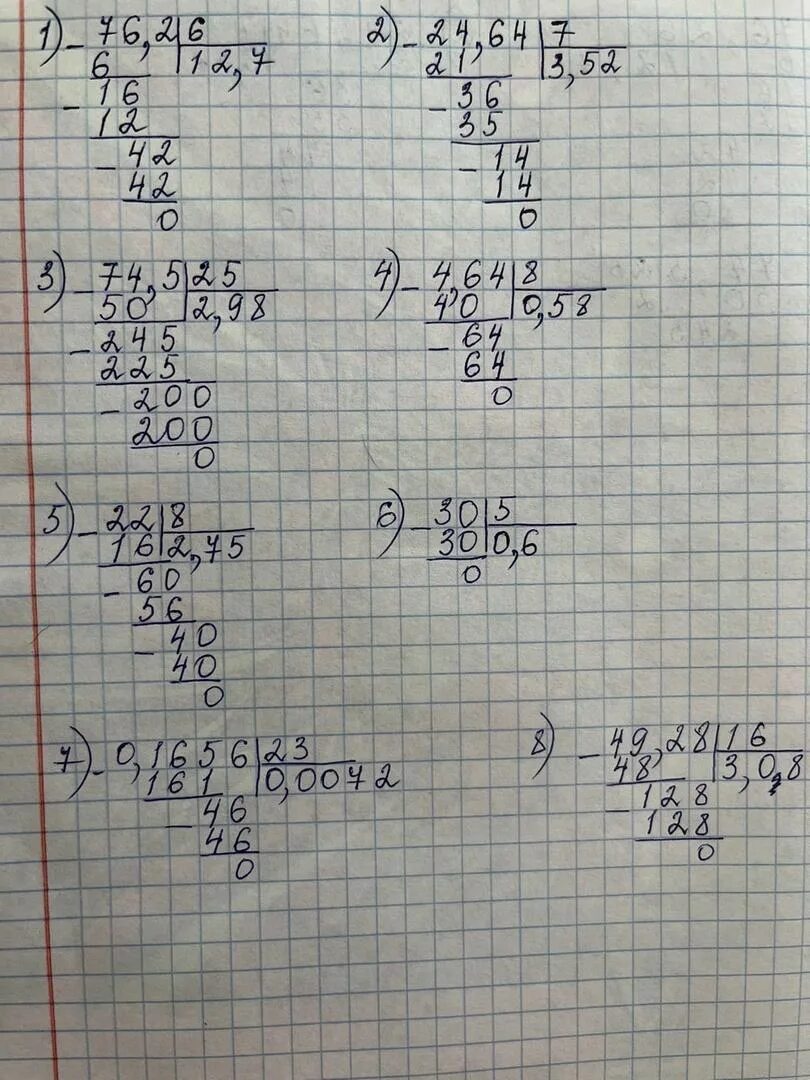 1) - 76,2 | 6
6 | 12,7
- 16
12
- 42
42
0
2) - 24,64 | 7
21 | 3,52
- 36
35
- 14
14
0
3) - 74,5 | 25
50 | 2,98
- 245
225
- 200
200
0
4) - 4,64 | 8
40 | 0,58
- 64
64
0
5) - 22 | 8
16 | 2,75
- 60
56
- 40
40
0
6) - 30 | 5
30 | 0,6
0
7) - 0,1656 | 23
161 | 0,0072
- 46
46
0
8) - 49,28 | 16
48 | 3,0,8
- 128
128
0